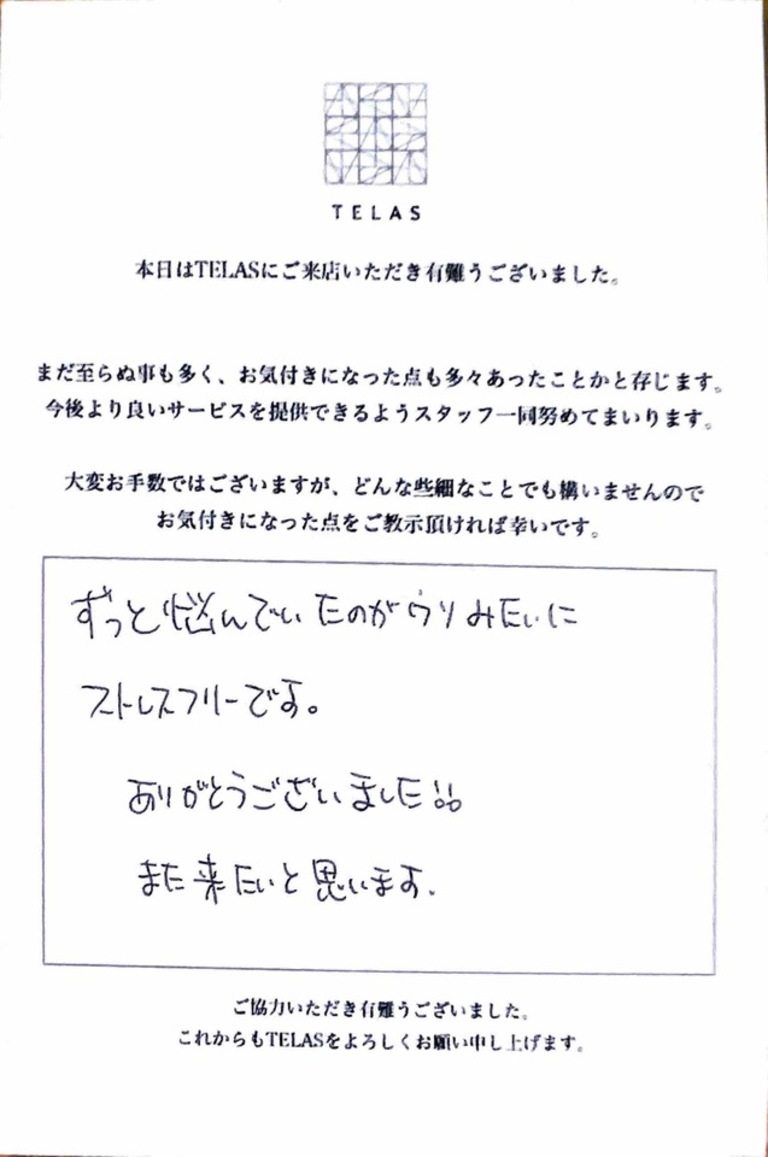 TELAS
本日はTELASにご来店いただき有難うございました。
まだ至らぬ事も多く、お気付きになった点も多々あったことかと存じます。
今後より良いサービスを提供できるようスタッフ一同努めてまいります。
大変お手数ではございますが、どんな些細なことでも構いませんので
お気付きになった点をご教示頂ければ幸いです。
ずっと悩んでいたのがウソみたいに
ストレスフリーです。
ありがとうございました!!
また来たいと思います.
ご協力いただき有難うございました。
これからもTELASをよろしくお願い申し上げます。